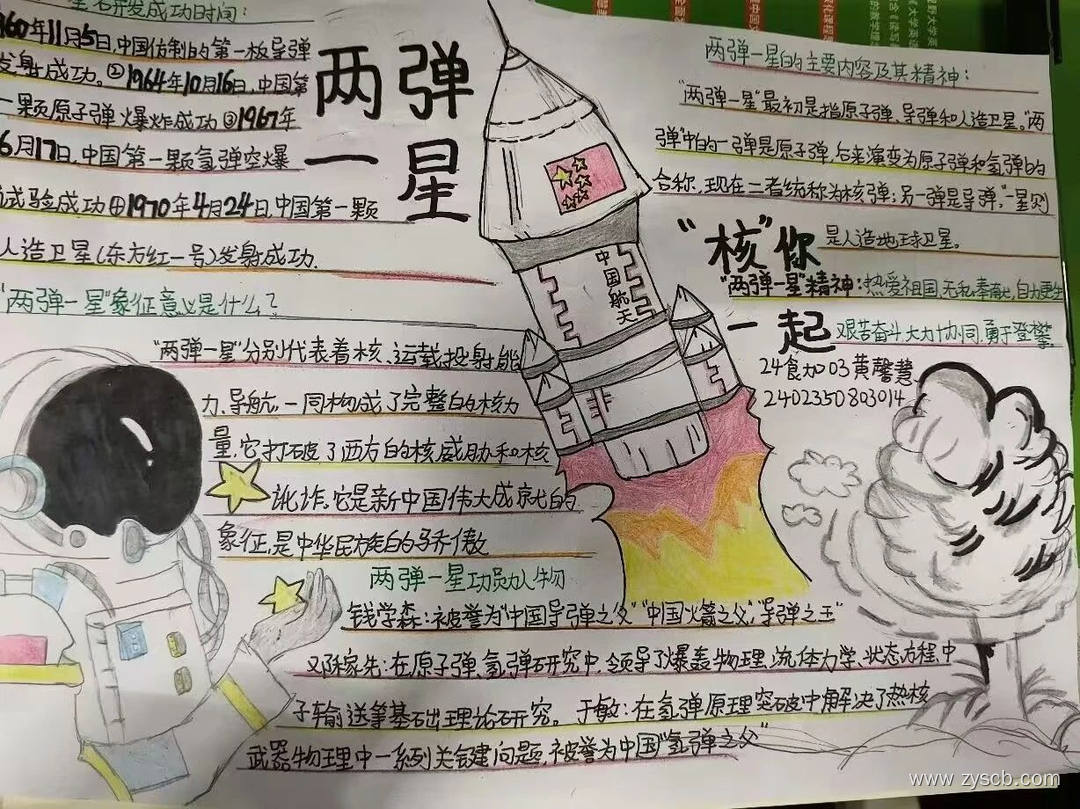 星研发成功时间:
1960年11月5日,中国仿制的第一枚导弹
发射成功。②1964年10月16日,中国第
一颗原子弹爆炸成功③1967年
6月17日,中国第一颗氢弹空爆
试验成功④1970年4月24日,中国第一颗
人造卫星(东方红一号)发射成功.
"两弹一星"象征意义是什么?
"两弹一星"分别代表着核、运载投射能
力、导航,一同构成了完整的核力
量,它打破了西方的核威胁和核
讹诈,它是新中国伟大成就的
象征,是中华民族的骄傲
两弹
一星
中国航天
两弹一星的主要内容及其精神:
"两弹一星"最初是指原子弹、导弹和人造卫星。"两
弹"中的一弹是原子弹,后来演变为原子弹和氢弹的
合称,现在二者统称为核弹;另一弹是导弹,"一星"则
是人造地球卫星。
"核"你
一起
"两弹一星"精神:热爱祖国,无私奉献,自力更生
艰苦奋斗,大力协同,勇于登攀。
24食加03黄馨慧
2402350803014
两弹一星功勋人物
钱学森:被誉为"中国导弹之父""中国火箭之父","导弹之王"
邓稼先:在原子弹、氢弹研究中,领导了爆轰物理,流体力学,状态方程,中
子输送等基础理论研究。于敏:在氢弹原理突破中解决了热核
武器物理中一系列关键问题,被誉为中国"氢弹之父"
www.zyscb.com